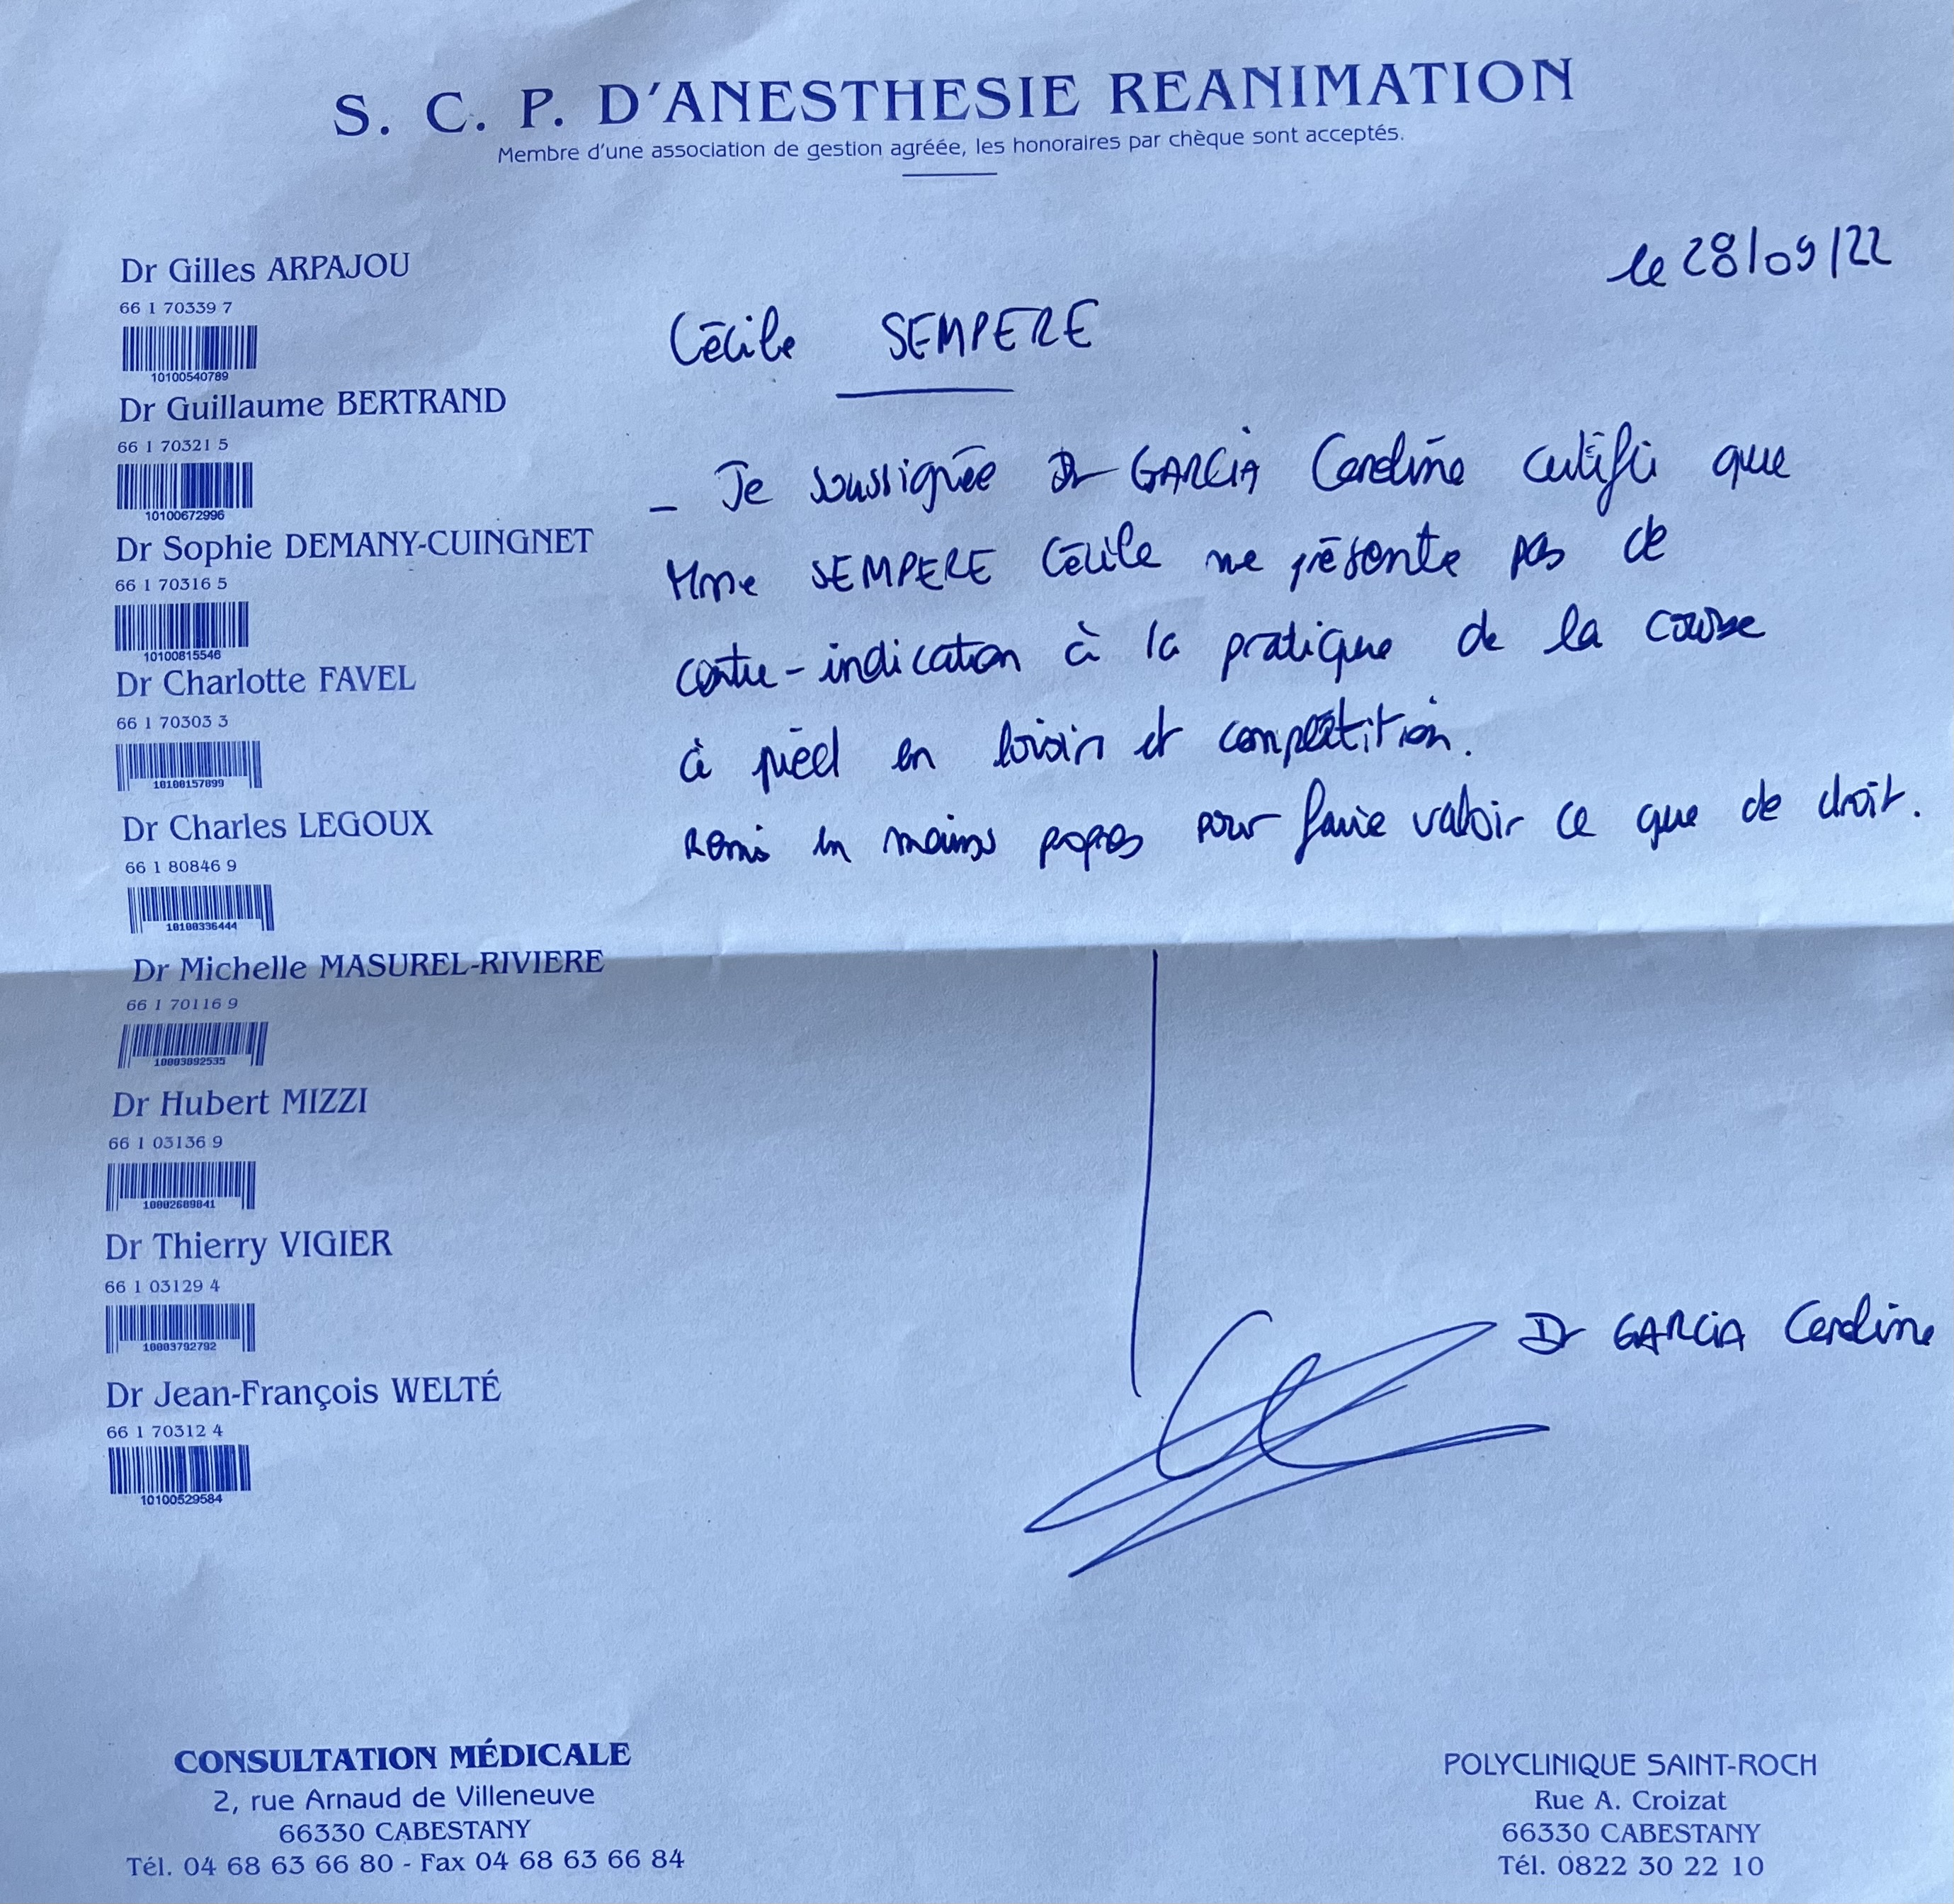 S. C. P. D'ANESTHESIE REANIMATION
Membre d'une association de gestion agréée, les honoraires par chèque sont acceptés.
le 28/09/22
Dr Gilles ARPAJOU
66 1 70339 7
10100540789
Dr Guillaume BERTRAND
66 1 70321 5
10100672996
Dr Sophie DEMANY-CUINGNET
66 1 70316 5
10100815546
Dr Charlotte FAVEL
66 1 70303 3
10100157899
Dr Charles LEGOUX
66 1 80846 9
10100336444
Dr Michelle MASUREL-RIVIERE
66 1 70116 9
10003092535
Dr Hubert MIZZI
66 1 03136 9
10002609841
Dr Thierry VIGIER
66 1 03129 4
10003792792
Dr Jean-François WELTÉ
66 1 70312 4
10100529584
Cécile SEMPERE
_ Je soussignée Dr GARCIA Caroline certifie que
Mme SEMPERE Cécile ne présente pas de
contre-indication à la pratique de la course
à pied en loisir et compétition.
Remis en mains propres pour faire valoir ce que de droit.
Dr GARCIA Caroline
CONSULTATION MÉDICALE
2, rue Arnaud de Villeneuve
66330 CABESTANY
Tél. 04 68 63 66 80 - Fax 04 68 63 66 84
POLYCLINIQUE SAINT-ROCH
Rue A. Croizat
66330 CABESTANY
Tél. 0822 30 22 10